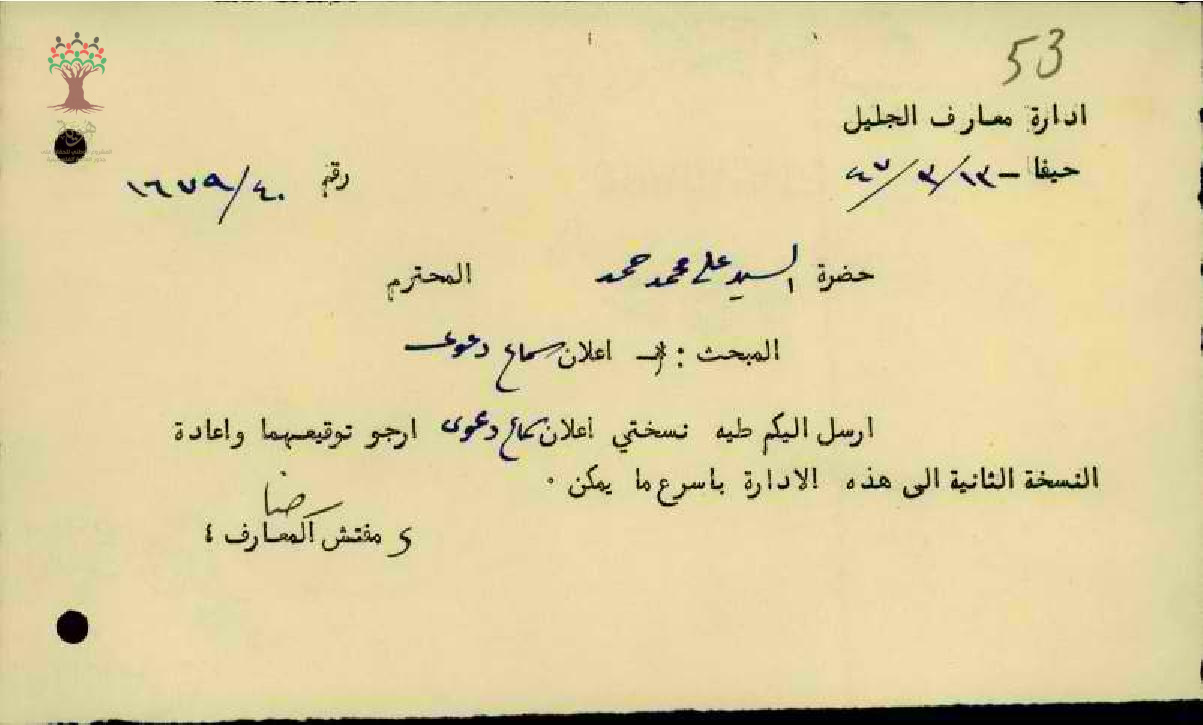 53
ادارة معارف الجليل
حيفا - ١٣/٣/٤٧
رقم ١٦٧٩/٤٠
حضرة السيد علي محمد حمد المحترم
المبحث : اعلان سماع دعوى
ارسل اليكم طيه نسختي اعلان سماع دعوى ارجو توقيعهما واعادة
النسخة الثانية الى هذه الادارة باسرع ما يمكن .
مفتش المعارف